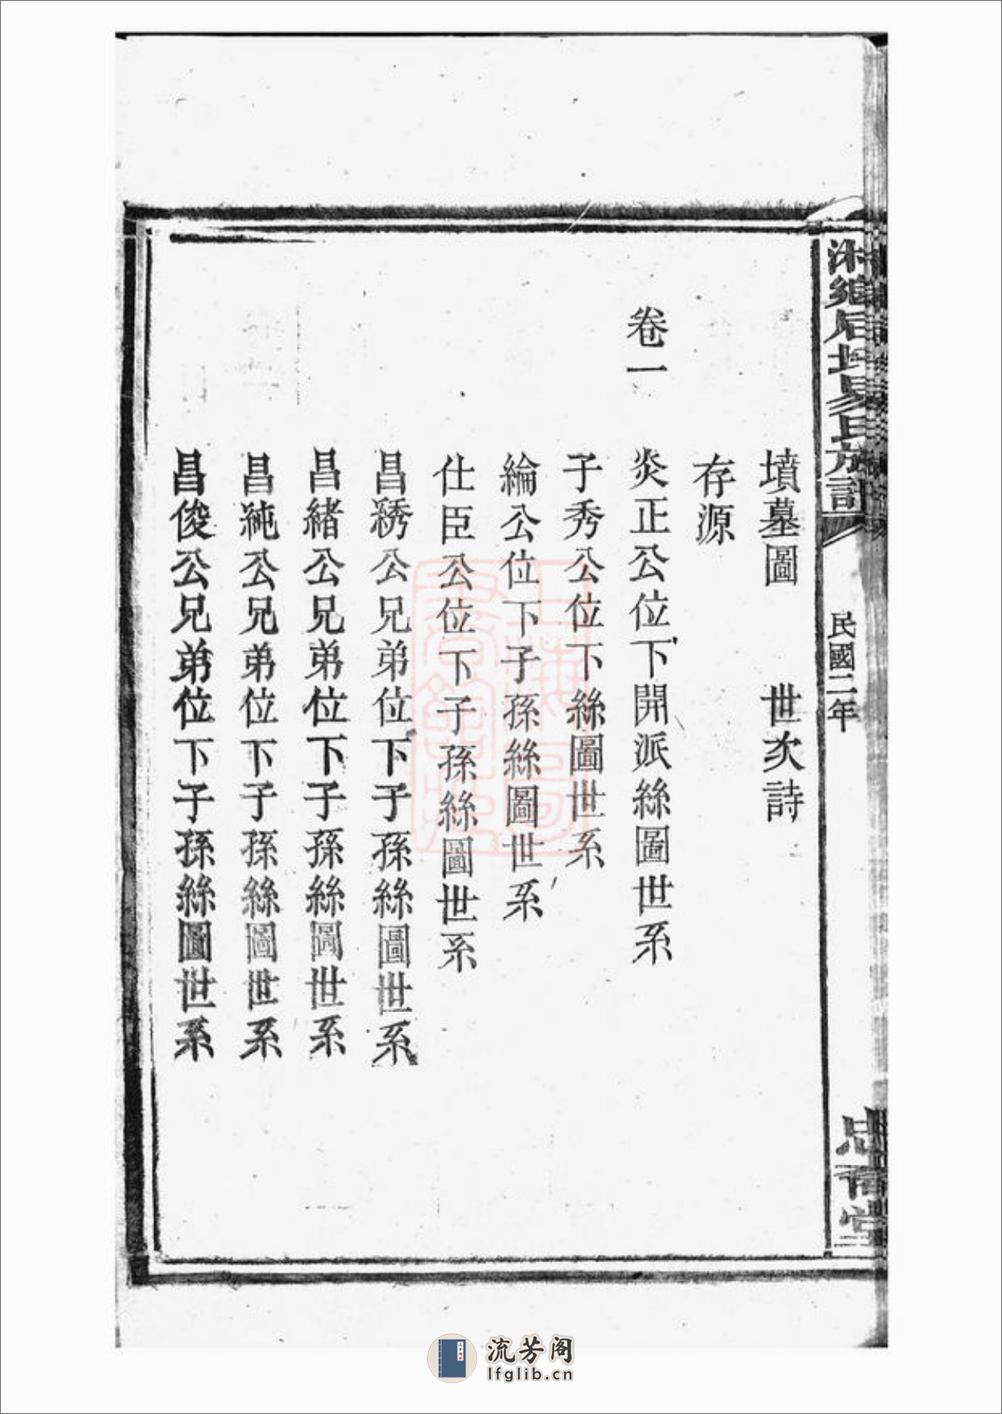 民國二年
墳墓圖　世次詩
存源
卷一　炎正公位下開派絲圖世系
子秀公位下絲圖世系
綸公位下子孫絲圖世系
仕臣公位下子孫絲圖世系
昌綉公兄弟位下子孫絲圖世系
昌緒公兄弟位下子孫絲圖世系
昌純公兄弟位下子孫絲圖世系
昌俊公兄弟位下子孫絲圖世系
流芳阁
lfglib.cn